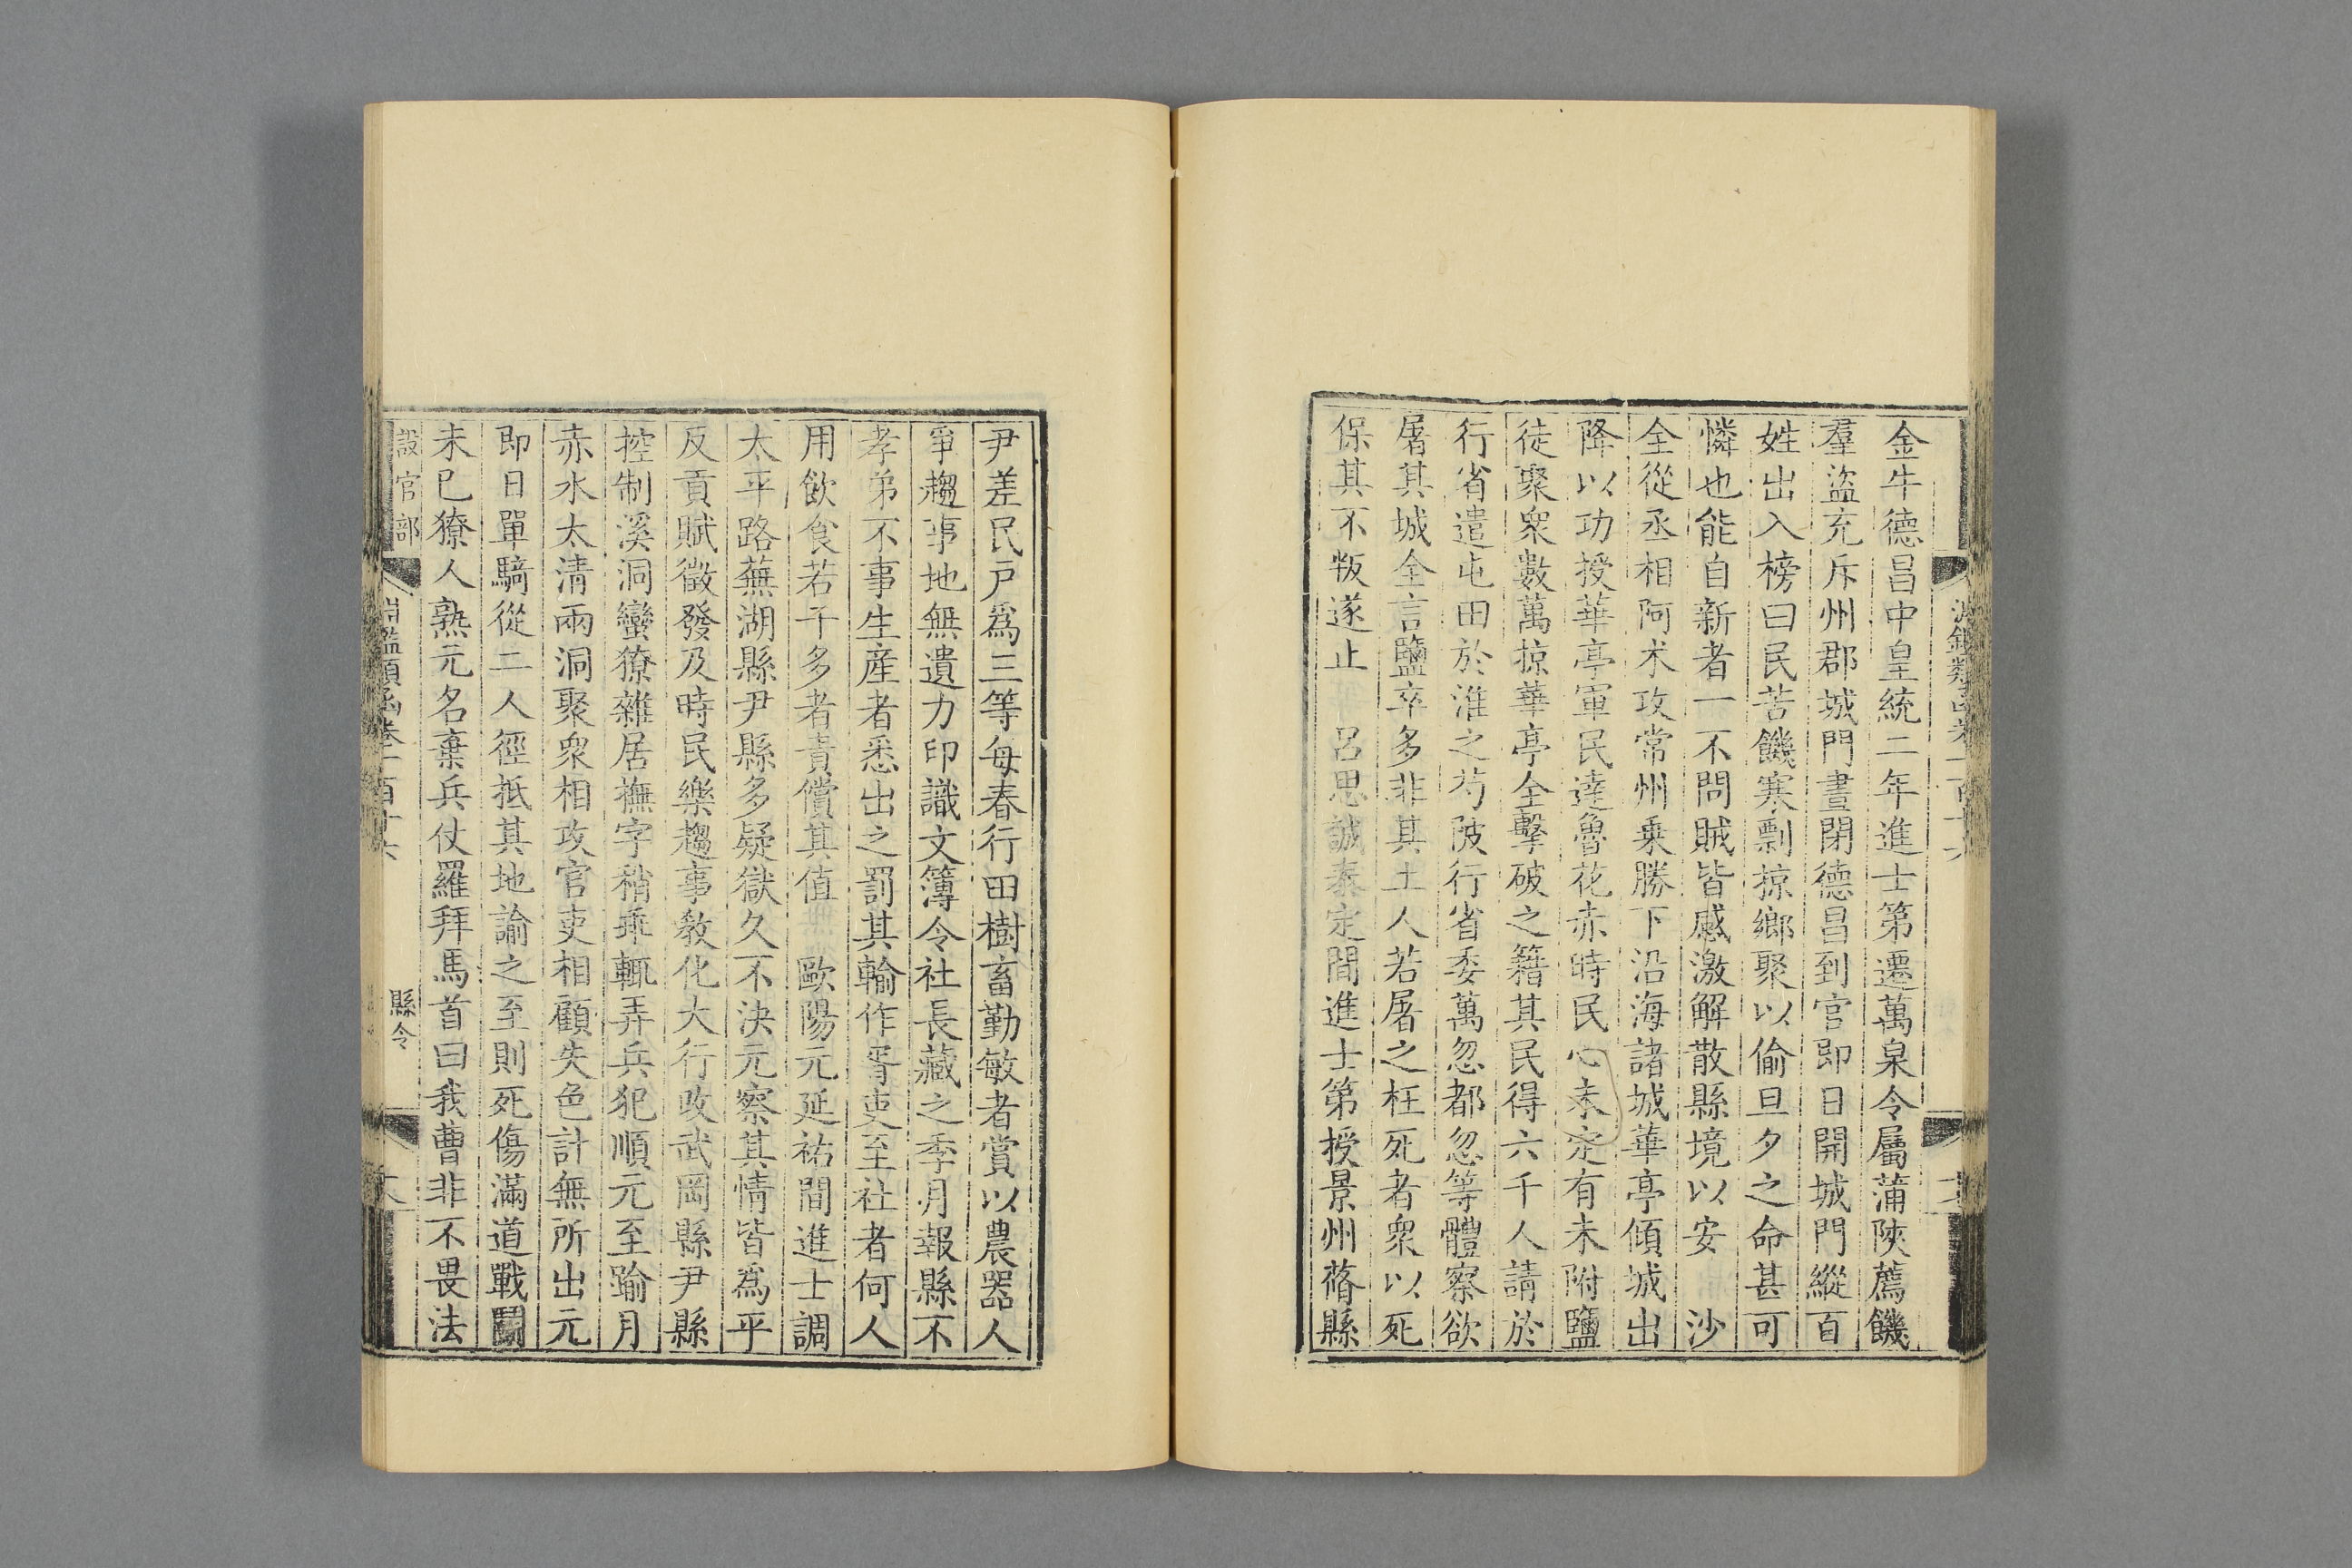 金牛德昌中皇統二年進士第遷萬泉令屬蒲陝薦饑
羣盜充斥州郡城門晝閉德昌到官即日開城門縱百
姓出入榜曰民苦饑寒剽掠鄉聚以偷旦夕之命甚可
憐也能自新者一不問賊皆感激解散縣境以安 沙
全從丞相阿朮攻常州乗勝下沿海諸城華亭傾城出
降以功授華亭軍民達魯花赤時民心未定有未附鹽
徒聚衆數萬掠華亭全擊破之籍其民得六千人請於
行省遣屯田於淮之芍陂行省委萬忽都忽等體察欲
屠其城全言鹽卒多非其土人若屠之枉死者衆以死
保其不叛遂止 呂思誠泰定間進士第授景州蓨縣
尹差民戸爲三等毎春行田樹畜勤敏者賞以農器人
爭趨事地無遺力印識文簿令社長藏之季月報縣不
孝弟不事生産者悉出之罰其輸作胥吏至社者何人
用飲食若干多者責償其值 歐陽元延祐間進士調
太平路蕪湖縣尹縣多疑獄久不決元察其情皆爲平
反貢賦徵發及時民樂趨事教化大行改武岡縣尹縣
控制溪洞蠻獠雜居撫字稍乖輒弄兵犯順元至踰月
赤水太清兩洞聚衆相攻官吏相顧失色計無所出元
即日單騎從二人徑抵其地諭之至則死傷滿道戰鬭
未已獠人熟元名棄兵仗羅拜馬首曰我曹非不畏法
設官部 淵鑑類函卷一百十六 縣令